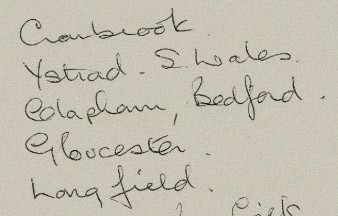 Cranbrook.
Ystrad. S. Wales.
Clapham, Bedford.
Gloucester.
Longfield.